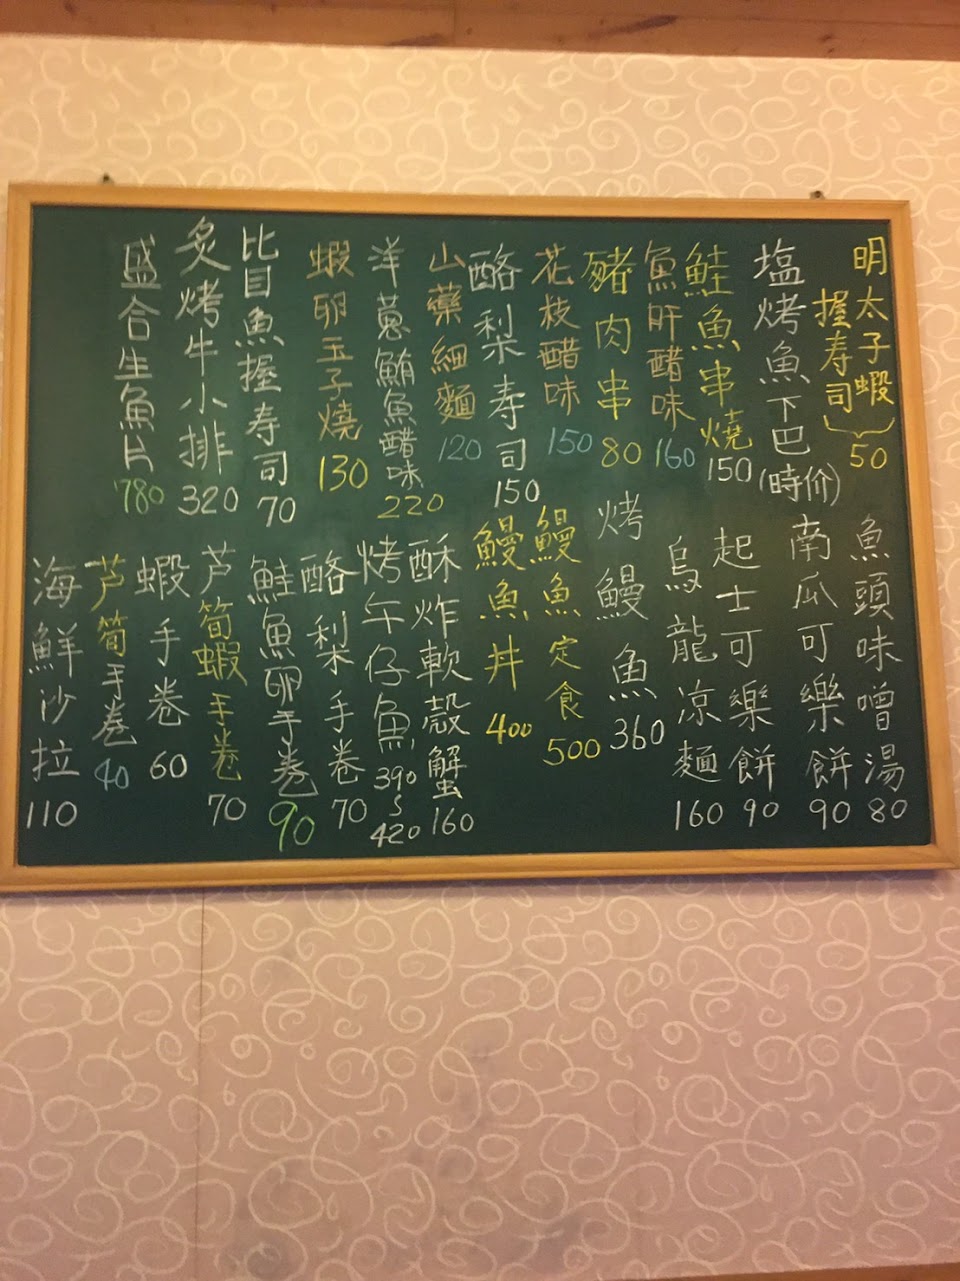 明太子蝦
握寿司
50
塩烤魚下巴
(時价)
鮭魚串燒
150
魚肝醋味
160
豬肉串
80
花枝醋味
150
酪梨寿司
150
山藥細麵
120
洋蔥鮪魚醋味
220
蝦卵玉子燒
130
比目魚握寿司
70
炙烤牛小排
320
盛合生魚片
780
魚頭味噌湯
80
南瓜可樂餅
90
起士可樂餅
90
烏龍凉麵
160
烤鰻魚
360
鰻魚定食
500
鰻魚丼
400
酥炸軟殼蟹
160
烤午仔魚
390~420
酪梨手卷
70
鮭魚卵手卷
90
芦筍蝦手卷
70
蝦手卷
60
芦筍手卷
40
海鮮沙拉
110